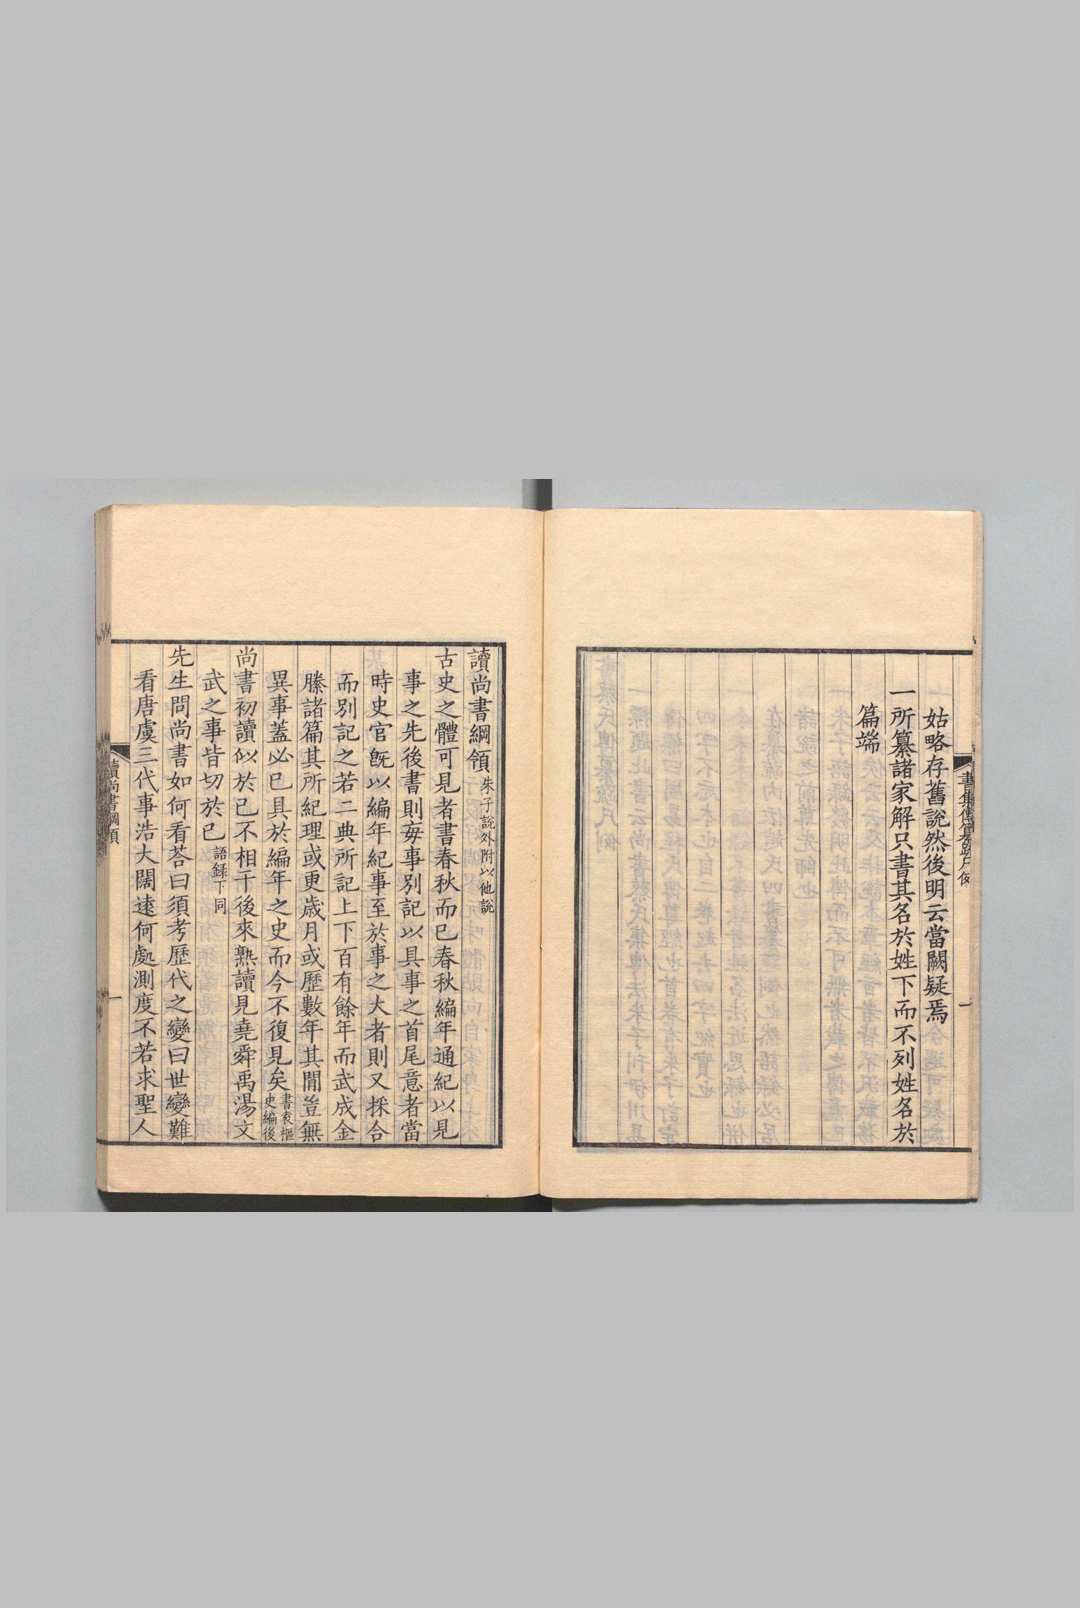 姑略存舊説然後明云當闕疑焉
一所纂諸家解只書其名於姓下而不列姓名於
篇端
讀尚書綱領朱子説外附以他説
古史之體可見者書春秋而已春秋編年通紀以見
事之先後書則每事別記以具事之首尾意者當
時史官既以編年紀事至於事之大者則又採合
而別記之若二典所記上下百有餘年而武成金
縢諸篇其所紀理或更歳月或歷數年其間豈無
異事蓋必已具於編年之史而今不復見矣書衷樞史編後
尚書初讀似於已不相干後來熟讀見堯舜禹湯文
武之事皆切於已語録下同
先生問尚書如何看荅曰須考歷代之變曰世變難
看唐虞三代事浩大闊遠何處測度不若求聖人
讀尚書綱領
一